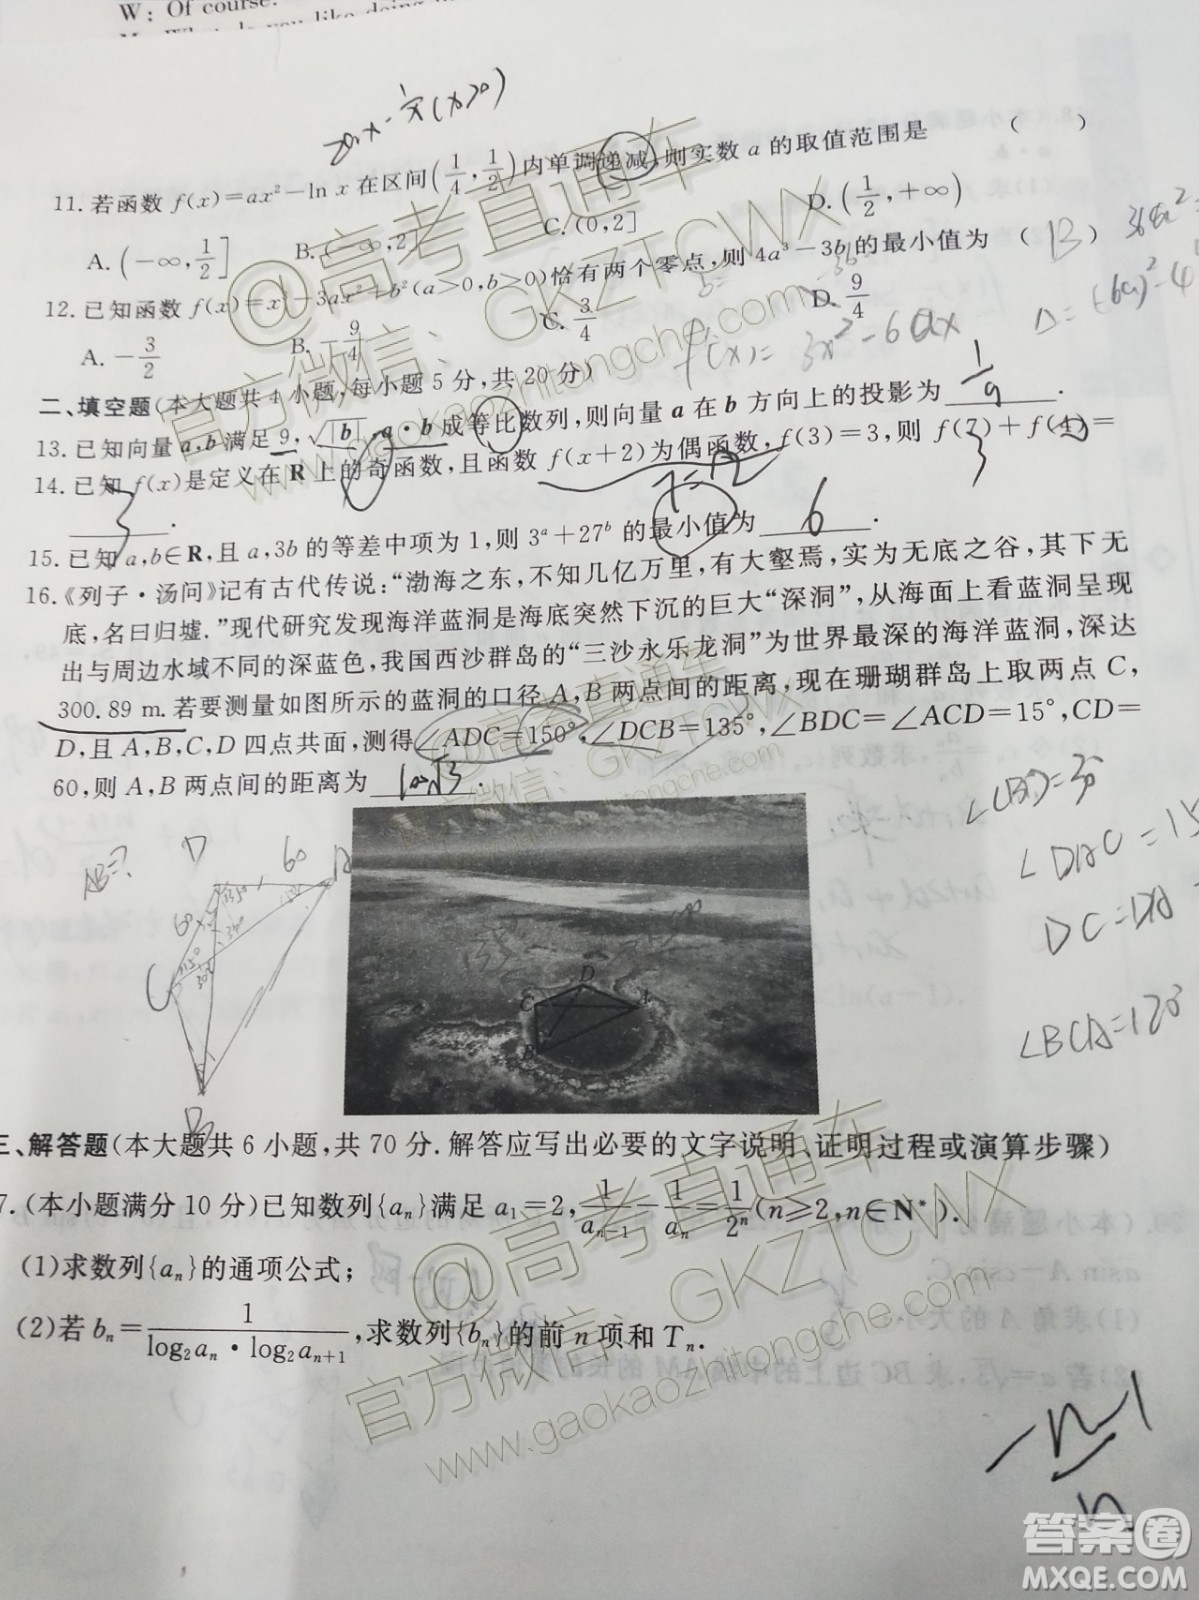 W: Of course.
11.若函数 f(x)=ax²-ln x 在区间(1/4,1/2)内单调递减,则实数 a 的取值范围是 ( )
A.(-∞,1/2] B.(-∞,2] C.(0,2] D.(1/2,+∞)
12.已知函数 f(x)=x³-3ax²+b²(a>0,b>0)恰有两个零点,则 4a³-3b 的最小值为 ( B )
A.-3/2 B.-9/4 C.3/4 D.9/4
f'(x)=3x²-6ax
二、填空题(本大题共 4 小题,每小题 5 分,共 20 分)
13.已知向量 a,b 满足 9,√|b|,a·b 成等比数列,则向量 a 在 b 方向上的投影为 1/9 .
14.已知 f(x)是定义在 R 上的奇函数,且函数 f(x+2)为偶函数,f(3)=3,则 f(7)+f(4)=
3 .
15.已知 a,b∈R,且 a,3b 的等差中项为 1,则 3ᵃ+27ᵇ 的最小值为 6 .
16.《列子·汤问》记有古代传说:“渤海之东,不知几亿万里,有大壑焉,实为无底之谷,其下无
底,名曰归墟.”现代研究发现海洋蓝洞是海底突然下沉的巨大“深洞”,从海面上看蓝洞呈现
出与周边水域不同的深蓝色,我国西沙群岛的“三沙永乐龙洞”为世界最深的海洋蓝洞,深达
300.89 m.若要测量如图所示的蓝洞的口径 A,B 两点间的距离,现在珊瑚群岛上取两点 C,
D,且 A,B,C,D 四点共面,测得∠ADC=150°,∠DCB=135°,∠BDC=∠ACD=15°,CD=
60,则 A,B 两点间的距离为
AB=?
D
60
A
60
C
B
∠DAC=15
∠BCA=120°
D
C
A
B
三、解答题(本大题共 6 小题,共 70 分.解答应写出必要的文字说明、证明过程或演算步骤)
7.(本小题满分 10 分)已知数列{aₙ}满足 a₁=2,1/aₙ₋₁-1/aₙ=1/2ⁿ(n≥2,n∈N*).
(1)求数列{aₙ}的通项公式;
(2)若 bₙ=1/(log₂aₙ·log₂aₙ₊₁),求数列{bₙ}的前 n 项和 Tₙ.
@高考直通车
官方微信:GKZTCWX
www.gaokaozhitongche.com
答案圈
MXQE.COM